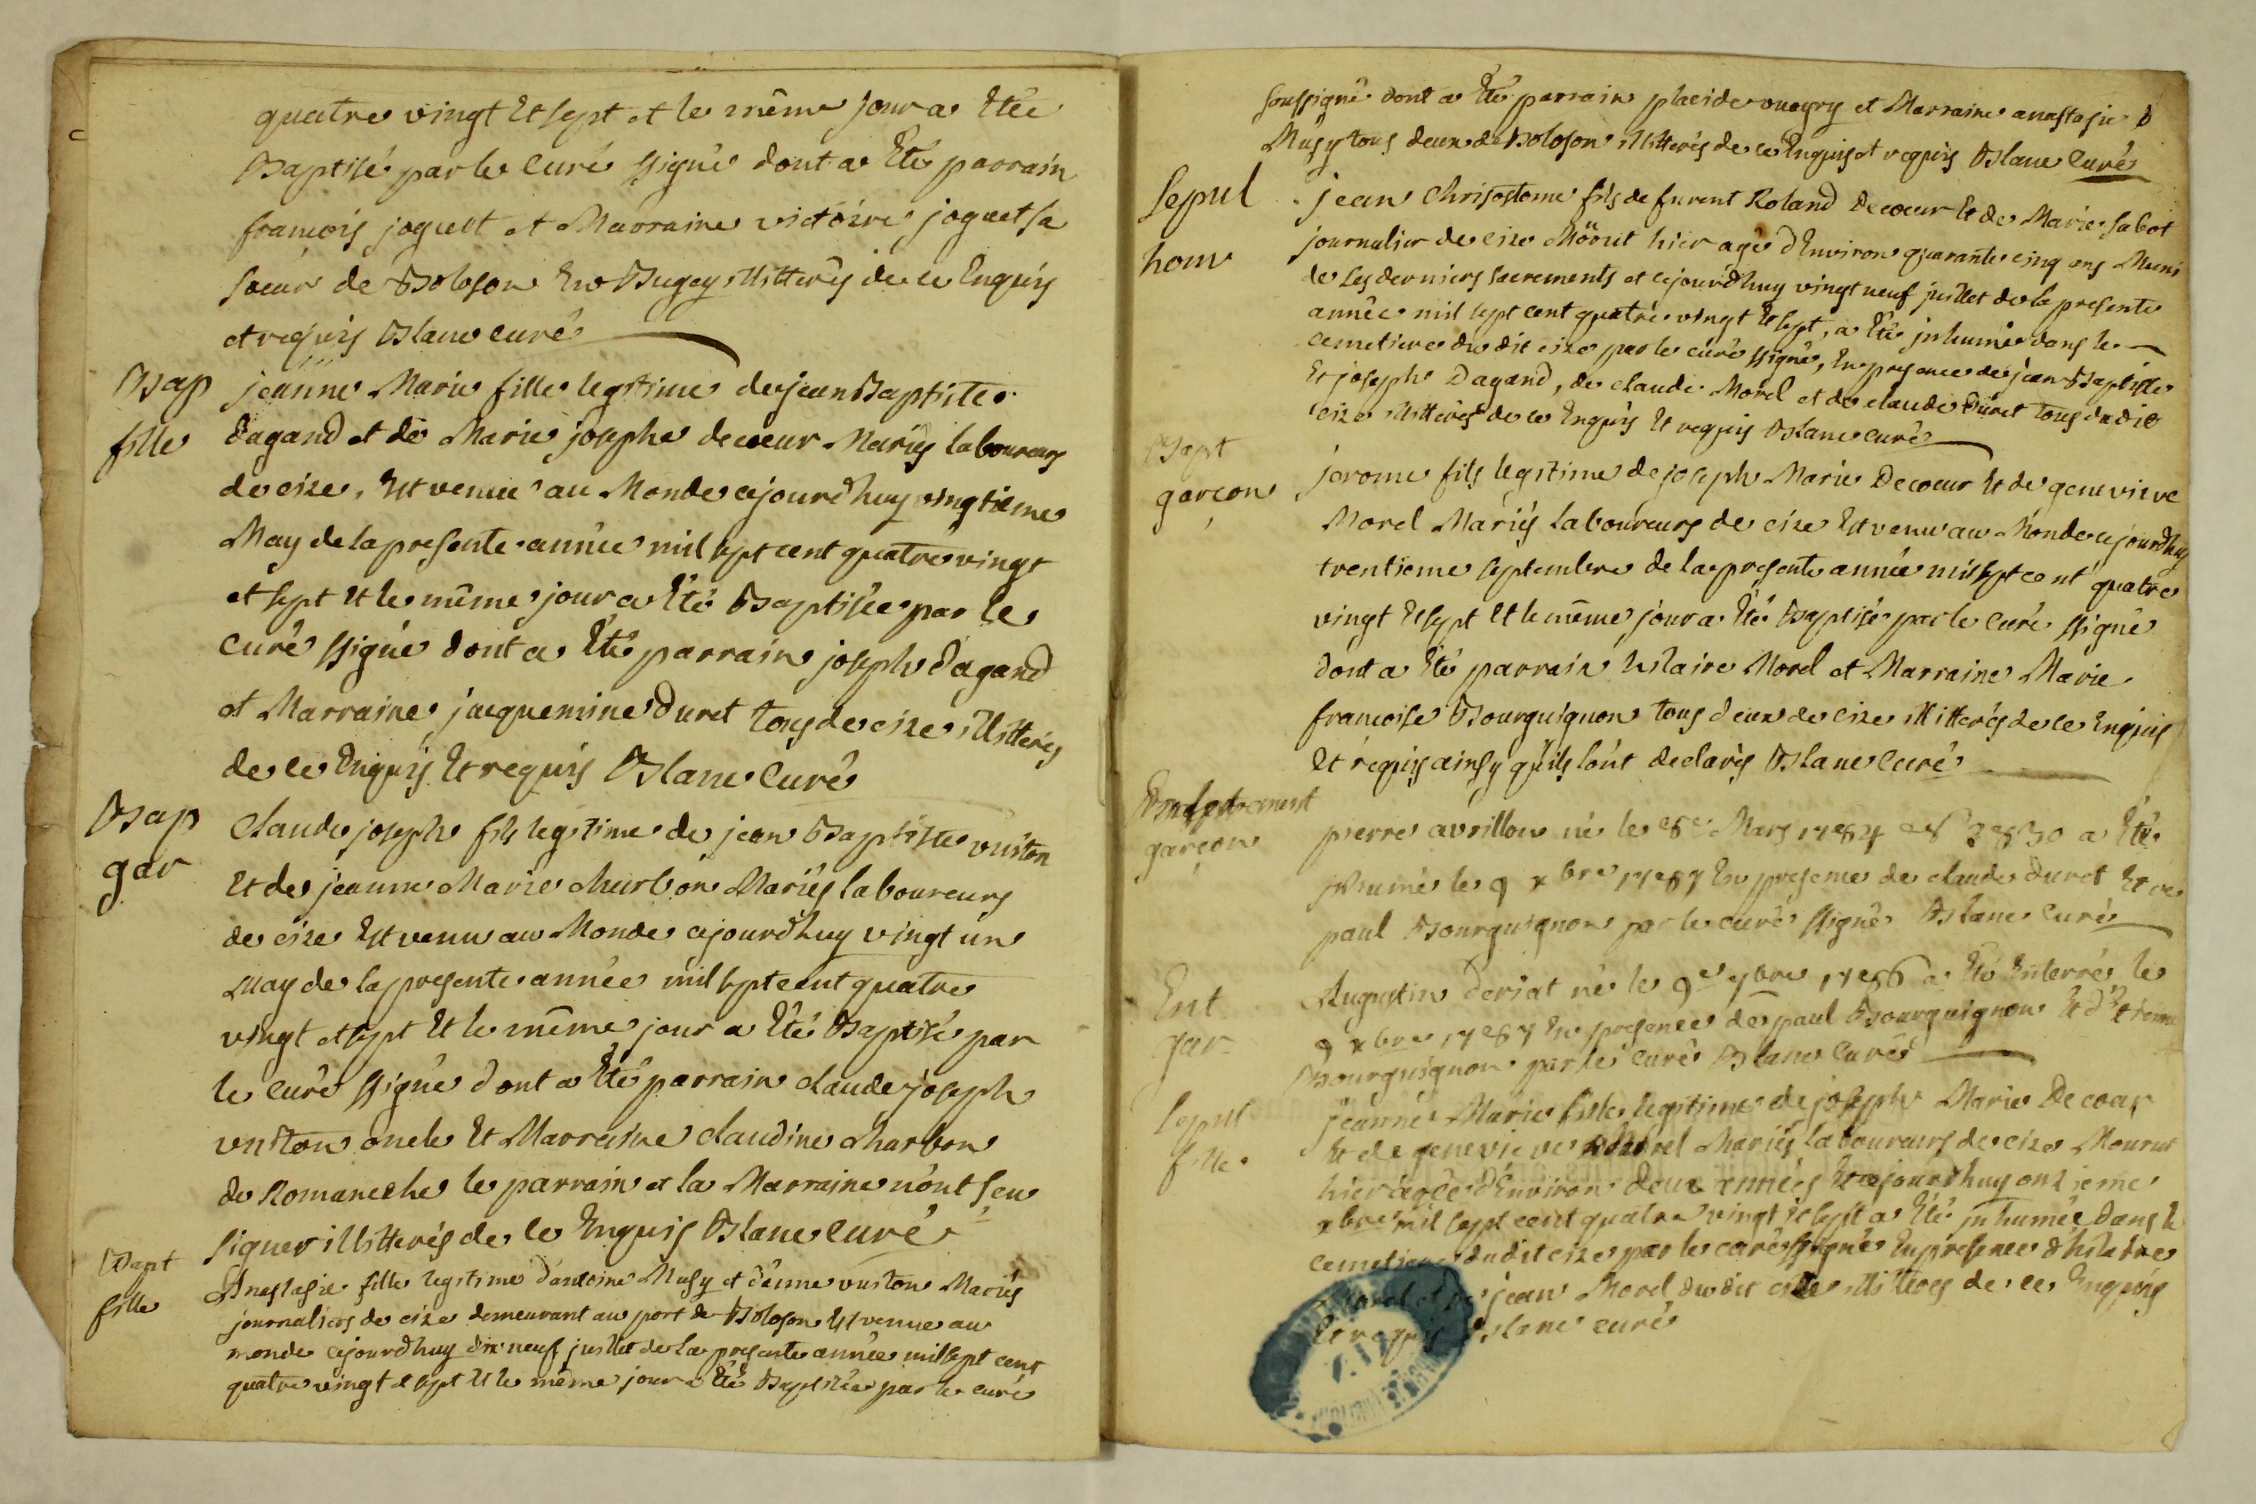 quatre vingt Et sept et le même jour a Etée
Baptisé par le Curé ssigné dont a Eté parrain
francois joguet et Marraine victoire joguet sa
soeur de Boloson En Bugey illitterés de ce Enquis
et requis Blanc curé
Bap
fille
jeanne Marie fille legitime de jean Baptiste
dagand et de Marie josephe decoeur Mariés laboureurs
de cize, Est venue au Monde cejourdhuy vingtieme
May de la presente année mil sept cent quatre vingt
et sept Et le même jour a Eté Baptisée par le
Curé ssigné dont a Eté parrain joseph dagand
et Marraine jacquemine duret tous de cize illitterés
de ce Enquis Et requis Blanc Curé
Bap
gar
Claude joseph fils legitime de jean Baptiste vuiton
Et de jeanne Marie charbon Mariés laboureurs
de cize Est venu au Monde cejourdhuy vingt un
May de la presente année mil sept cent quatre
vingt et sept Et le même jour a Eté Baptisé par
le Curé ssigné dont a Eté parrain claude joseph
vuiton oncle Et Marraine claudine charbon
de Romaneche le parrain et la Marraine n'ont sçu
signer illitterés de ce Enquis Blanc curé
Bapt
fille
Anastasie fille legitime d'antoine Musy et d'enne vuiton Mariés
journaliers de cize demeurant au port de Boloson Est venue au
monde cejourdhuy dix neuf juillet de la presente année mil sept cent
quatre vingt et sept Et le même jour a Eté Baptisée par le curé
soussigné dont a Eté parrain placide et Marraine anastasie
Musy tous deux de Boloson illitterés de ce Enquis et requis Blanc Curé
Sepul
hom
jean Chrisostome fils de furent Roland Decoeur Et de Marie sabot
journalier de cize Mourut hier agé d'Environ quarante cinq ans Muni
de ses derniers sacrements et cejourdhuy vingt neuf juillet de la presente
année mil sept cent quatre vingt Et sept, a Eté inhumé dans le
cemetiere du dit cize par le curé ssigné, En presence de jean Baptiste
Et joseph Dagand, de claude Morel et de claude Duret tous du dit
cize illitterés de ce Enquis Et requis Blanc curé
Bapt
garcon
jerome fils legitime de joseph Marie Decoeur Et de genevieve
Morel Mariés laboureurs de cize Est venu au Monde cejourdhuy
trentieme septembre de la presente année mil sept cent quatre
vingt Et sept Et le même jour a Eté Baptisé par le Curé ssigné
dont a Eté parrain hilaire Morel et Marraine Marie
francoise Bourguignon tous deux de cize illitterés de ce Enquis
Et requis ainsy qu'ils l'ont declarés Blanc Curé
garcon
pierre avrillon né le Mars 1784 a Eté
inhumé le 9 xbre 1787 En presence de claude duret Et de
paul Bourguignon par le curé ssigné Blanc Curé
Ent
gar
Augustin deriat né le 9e 7bre 1786 a Eté Enterré le
9 xbre 1787 En presence de paul Bourguignon Et d'Etienne
Bourguignon par le Curé Blanc Curé
Sepul
fille
jeanne Marie fille legitime de joseph Marie Decoeur
Et de genevieve Morel Mariés laboureurs de cize Mourut
hier agée d'Environ deux années Et cejourdhuy onzieme
xbre mil sept cent quatre vingt Et sept a Eté inhumée dans le
cemetiere dudit cize par le curé ssigné En presence d'hilaire
Morel et de jean Morel du dit cize illitterés de ce Enquis
Et requis Blanc curé